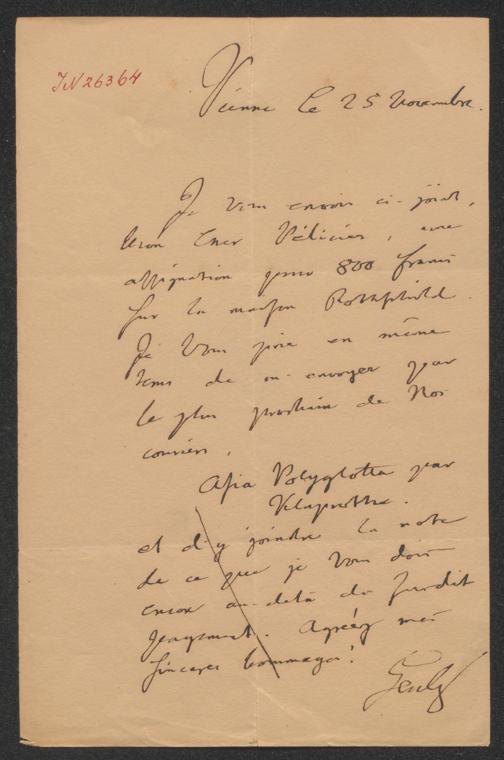 IN 26364
Vienne le 25 Novembre.
Je Vous envoie ci-joint,
Mon cher Pélicier, une
assignation pour 800 francs
sur la maison Rothschild.
Je Vous prie en même
tems de m'envoyer par
le plus prochain de Nos
couriers,
Asia Polyglotta par
Klaprothe.
et d'y joindre la note
de ce que je Vous dois
encore au-delà du susdit
payement. Agréez mes
sincères hommages!